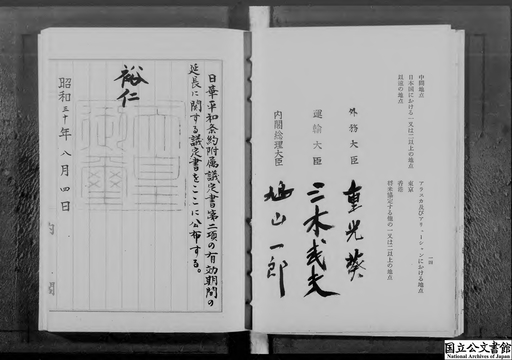 中間地点
日本国における一又は二以上の地点
以遠の地点
アラスカ及びアリューシャンにおける地点
東京
香港
将来協定する他の一又は二以上の地点
外務大臣 重光葵
運輸大臣 三木武夫
内閣総理大臣 鳩山一郎
日華平和条約附属議定書第二項の有効期間の
延長に関する議定書をここに公布する。
裕仁
昭和三十年八月四日
内閣
国立公文書館
National Archives of Japan